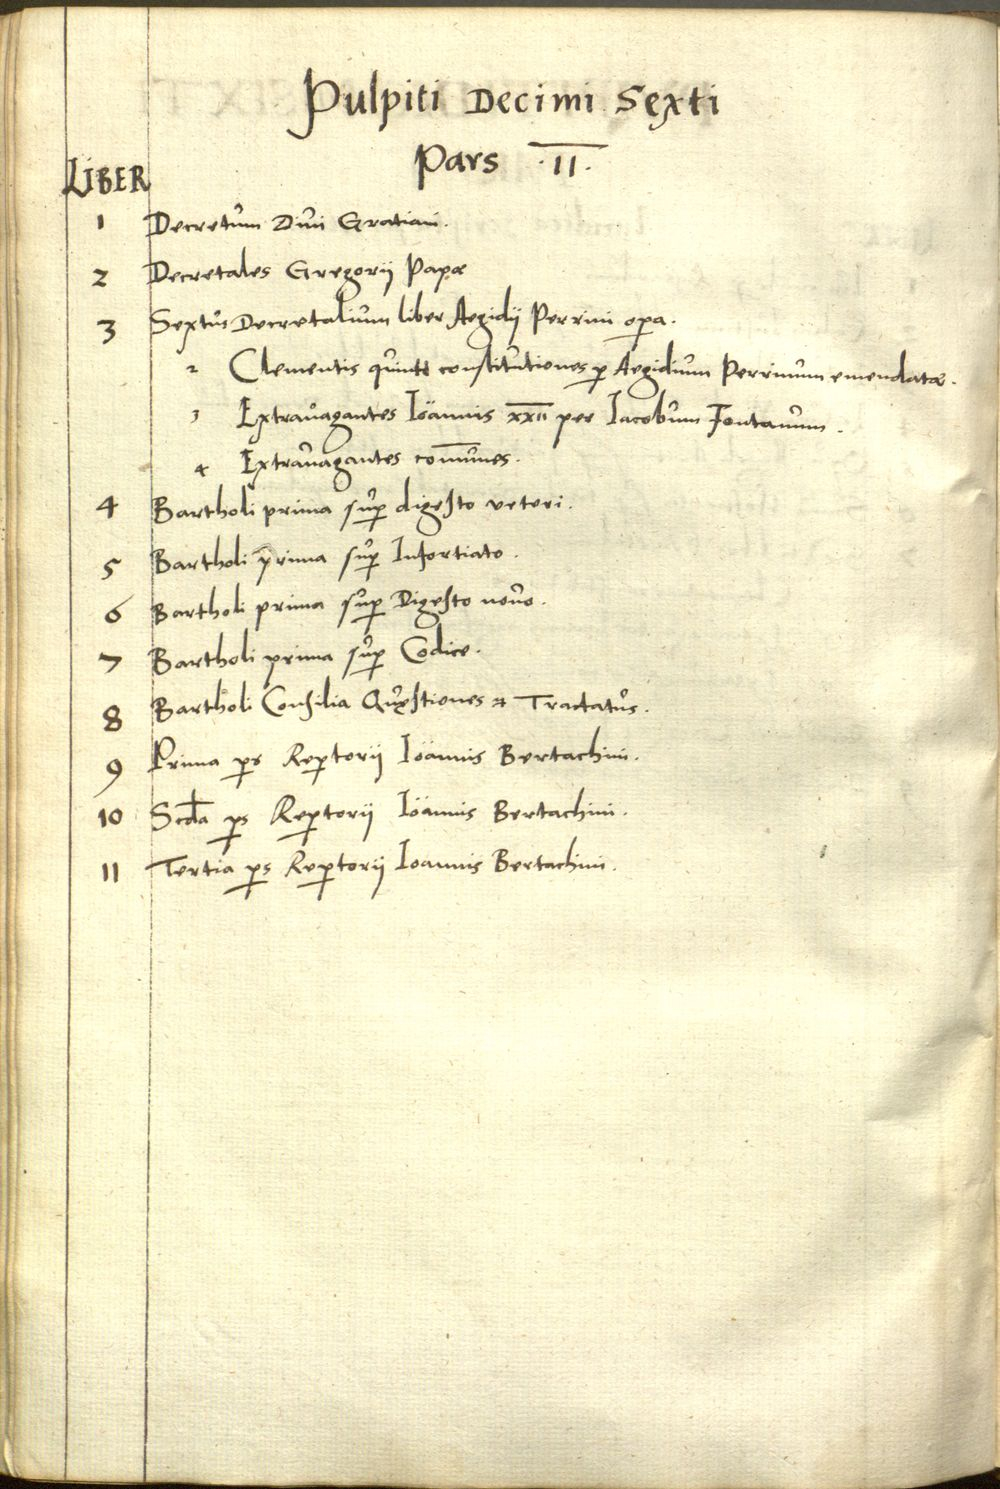 Pulpiti Decimi Sexti
Pars .II.
LIBER
1 Decretum Diui Gratiani.
2 Decretales Gregorij Papæ
3 Sextus Decretalium liber Aegidij Perrini opa.
2 Clementis quintę constitutiones p Aegidium Perrinum emendatæ.
3 Extrauagantes Ioannis xxii per Iacobum Fontanum.
4 Extrauagantes comunes.
4 Bartholi prima sup digesto veteri.
5 Bartholi prima sup Infortiato.
6 Bartholi prima sup Digesto nouo.
7 Bartholi prima sup Codice.
8 Bartholi Consilia Quęstiones & Tractatus.
9 Prima ps Reptorij Ioannis Bertachini.
10 Scda ps Reptorij Ioannis Bertachini.
11 Tertia ps Reptorij Ioannis Bertachini.